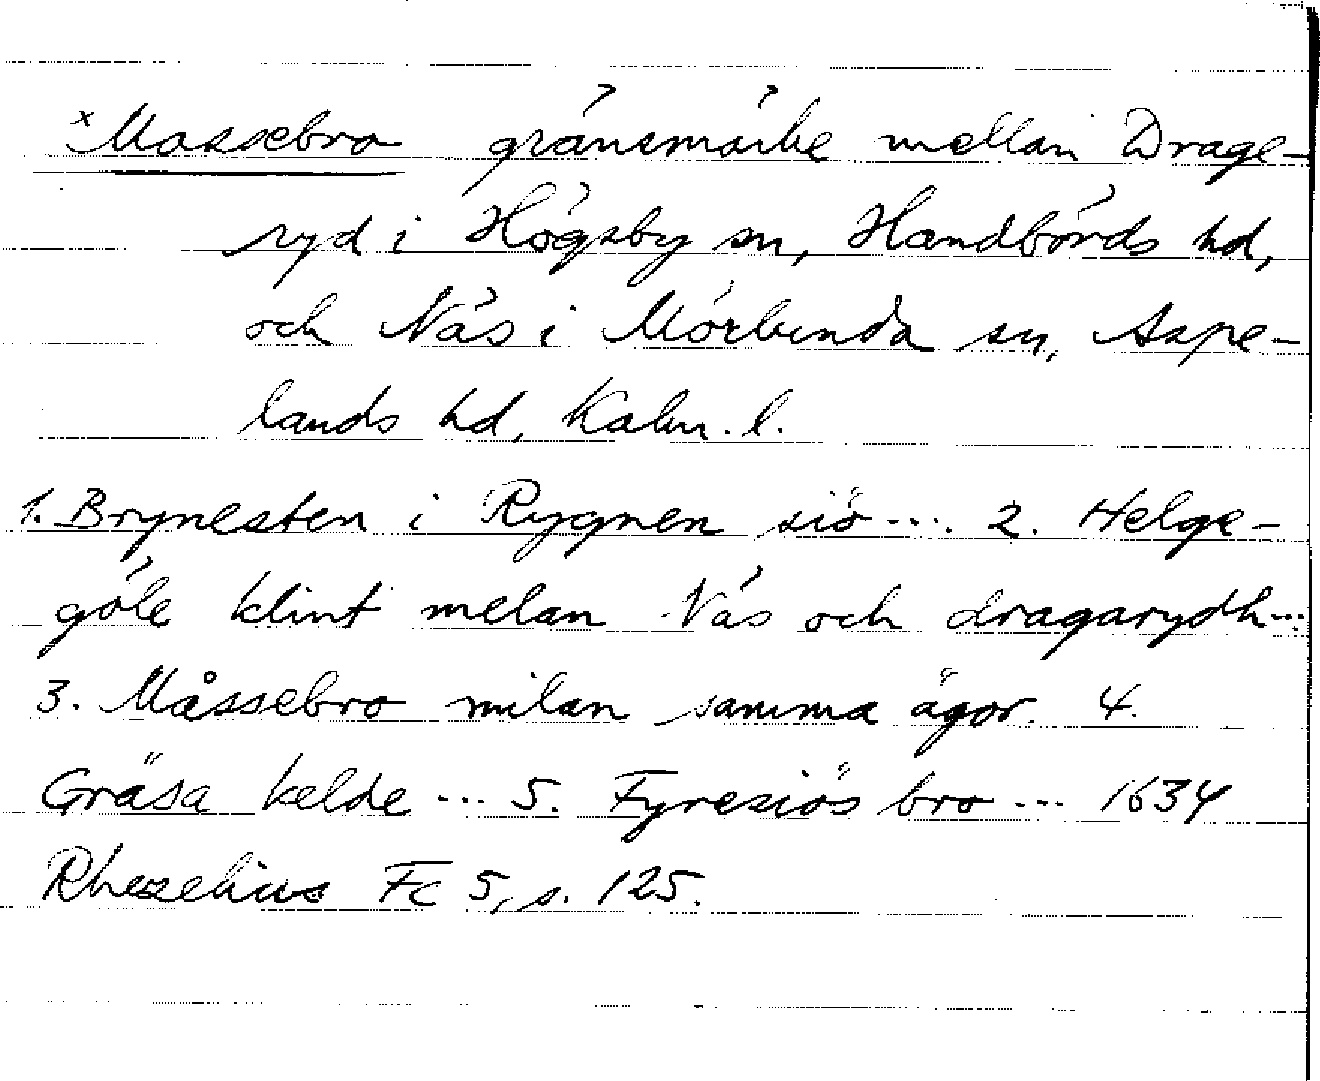 x Mossebro gränsmärke mellan Drage-
ryd i Högsby sn, Handbörds hd,
och Näs i Mörlunda sn, Aspe-
lands hd, Kalm. l.
1. Brynesten i Rygnen siö .... 2. Helge-
göle klint melan Näs och dragarydh...
3. Måssebro milan samma ägor. 4.
Gräsa kelde ... 5. Fyresiös bro ... 1634
Rhezelius Fc 5, s. 125.